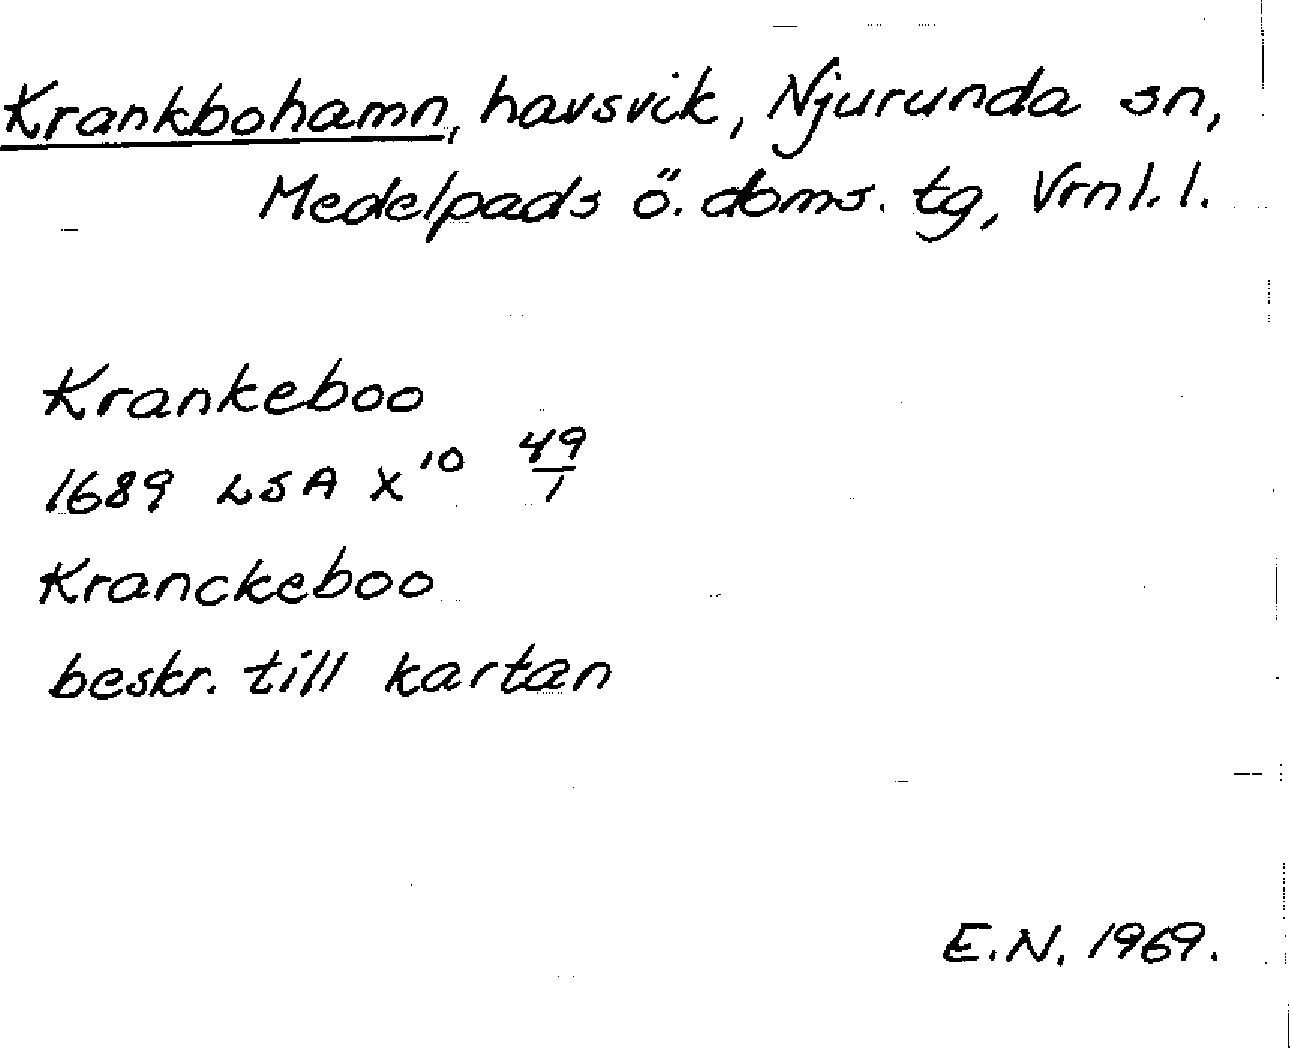 Krankbohamn, havsvik, Njurunda sn,
Medelpads ö. doms. tg, Vrnl. l.
Krankeboo
1689 LSA X¹⁰ 49/1
Kranckeboo
beskr. till kartan
E.N. 1969.